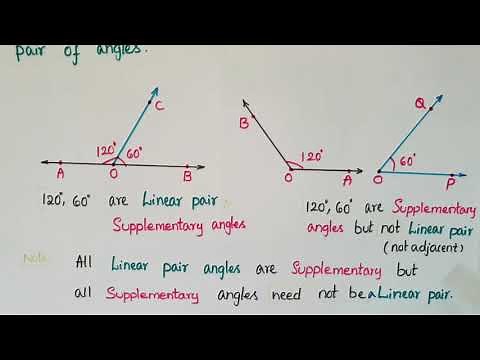 pair of angles.
C
Q
B
120° 60°
120°
60°
A O B
O A
O P
120°, 60° are Linear pair
Supplementary angles
120°, 60° are Supplementary
angles but not Linear pair
(not adjacent)
Note: All Linear pair angles are Supplementary but
all Supplementary angles need not be a Linear pair.